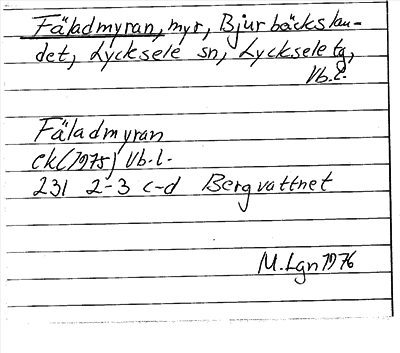 Fäladmyran, myr, Bjurbäckslan-
det, Lycksele sn, Lycksele tg,
Vb.l.
Fäladmyran
ek(1975) Vb.l.
231 2-3 c-d Bergvattnet
M.Lgn 1976